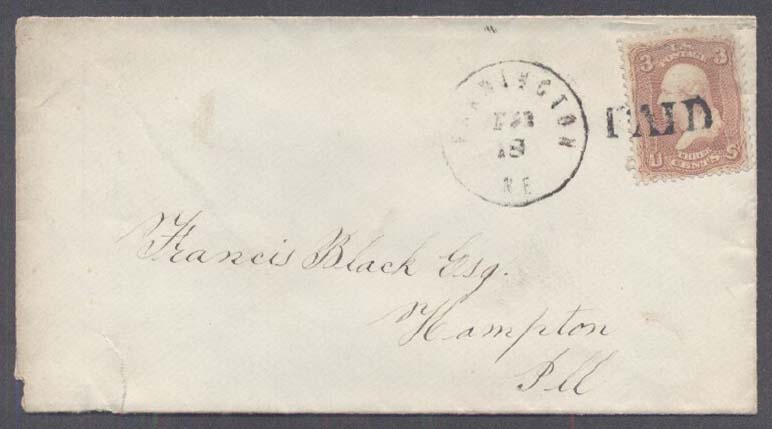 3 U.S. 3
POSTAGE
PAID
U THREE S
CENTS
FARMINGTON
FEB
18
ME
Francis Black Esq.
Hampton
Ill